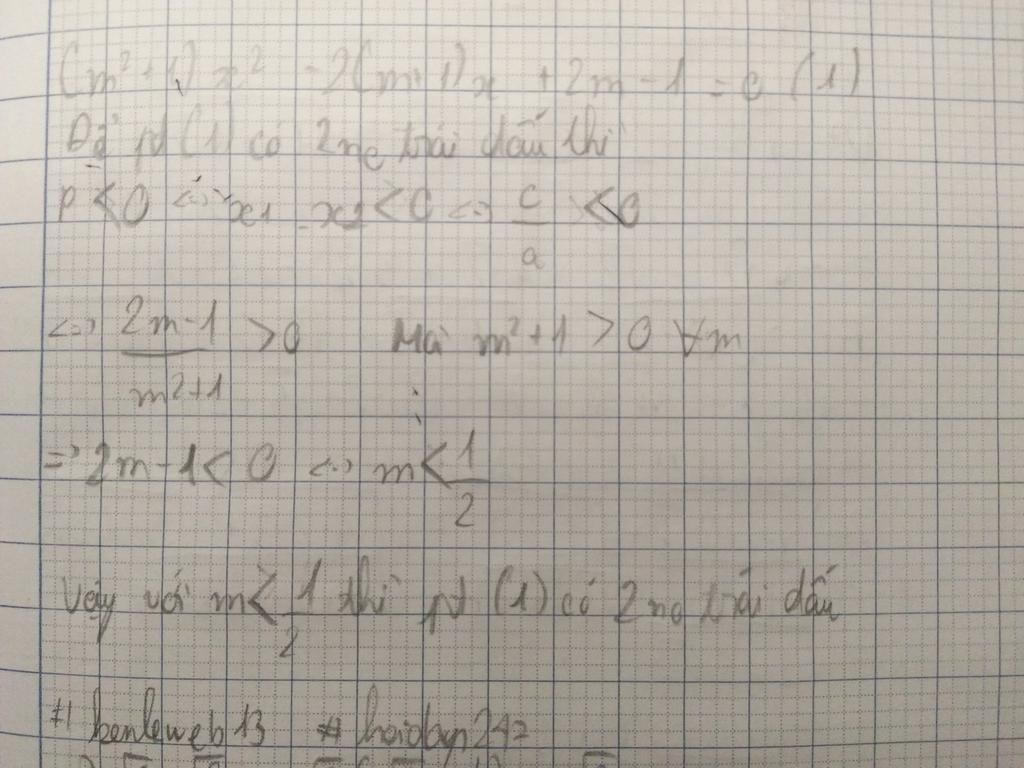 (m²+1)x² -2(m+1)x +2m-1 =0 (1)
Để pt (1) có 2 no trái dấu thì
P<0 <=> x1 . x2 <0 <=> c/a <0
<=> 2m-1/m²+1 >0 Mà m²+1 >0 ∀m
=> 2m-1<0 <=> m<1/2
Vậy với m<1/2 thì pt (1) có 2 no trái dấu
#1 benleweb13 # hoidap247